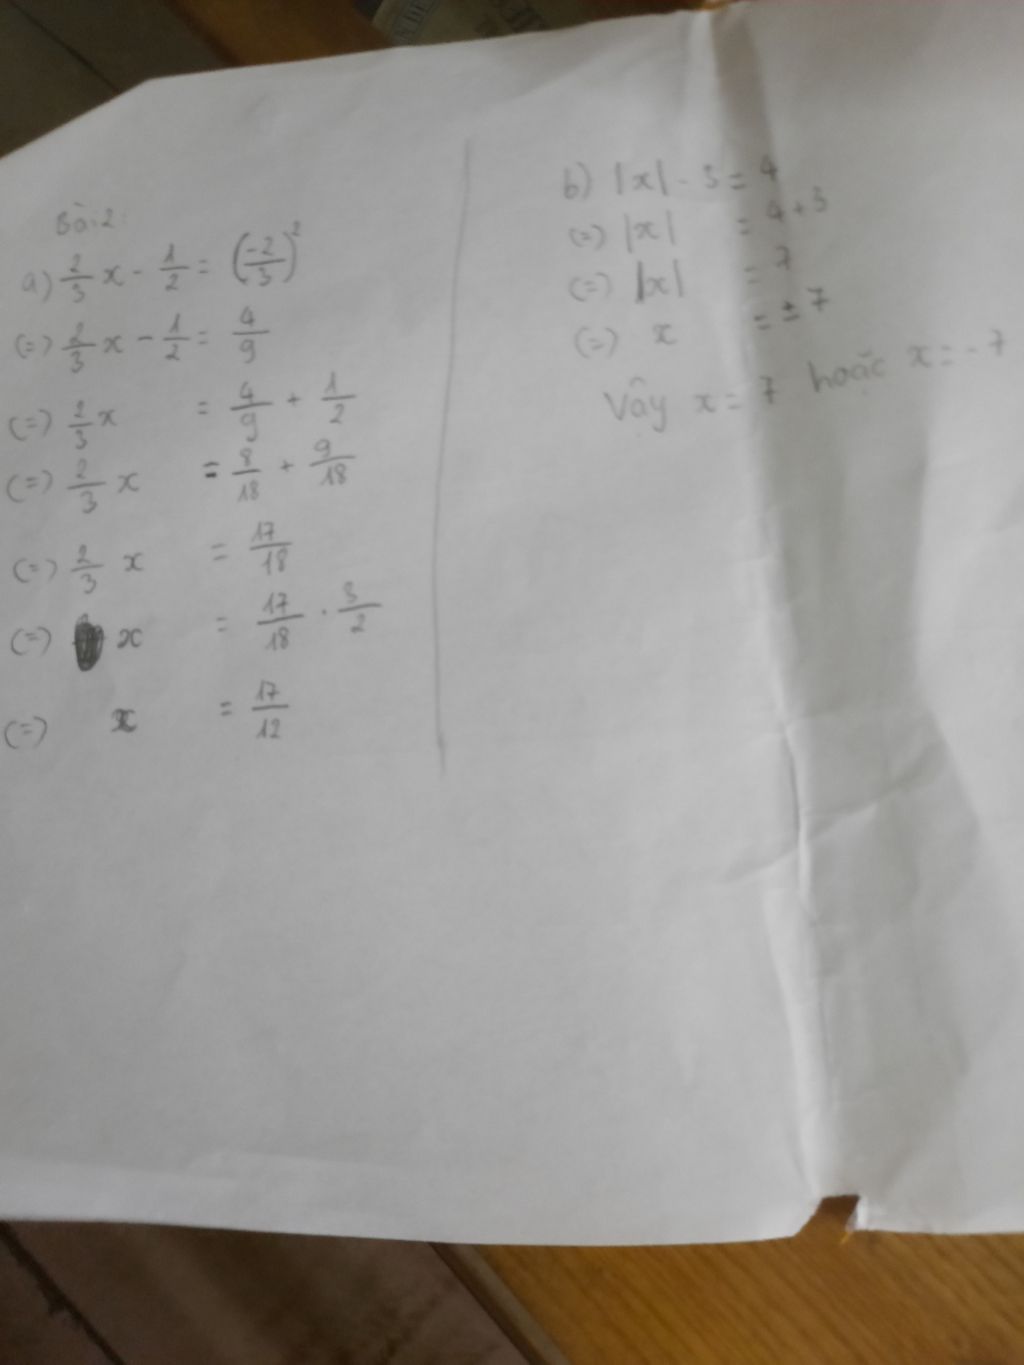 Bài 2:
a) 2/3 x - 1/2 = (-2/3)²
(=) 2/3 x - 1/2 = 4/9
(=) 2/3 x = 4/9 + 1/2
(=) 2/3 x = 8/18 + 9/18
(=) 2/3 x = 17/18
(=) x = 17/18 . 3/2
(=) x = 17/12
b) |x| - 3 = 4
(=) |x| = 4 + 3
(=) |x| = 7
(=) x = ± 7
Vậy x = 7 hoặc x = - 7